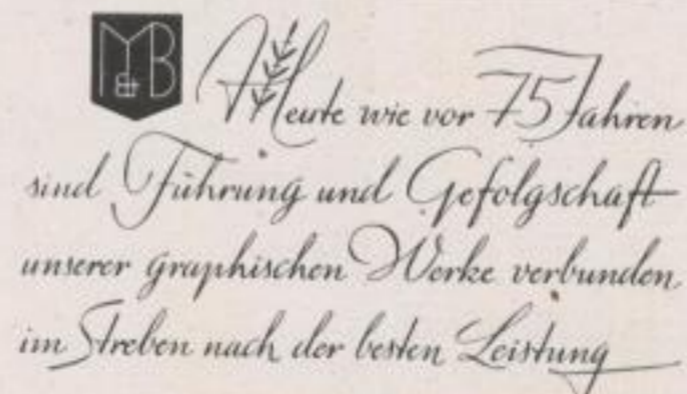 M & B
Heute wie vor 75 Jahren
sind Führung und Gefolgschaft
unserer graphischen Werke verbunden
im Streben nach der besten Leistung